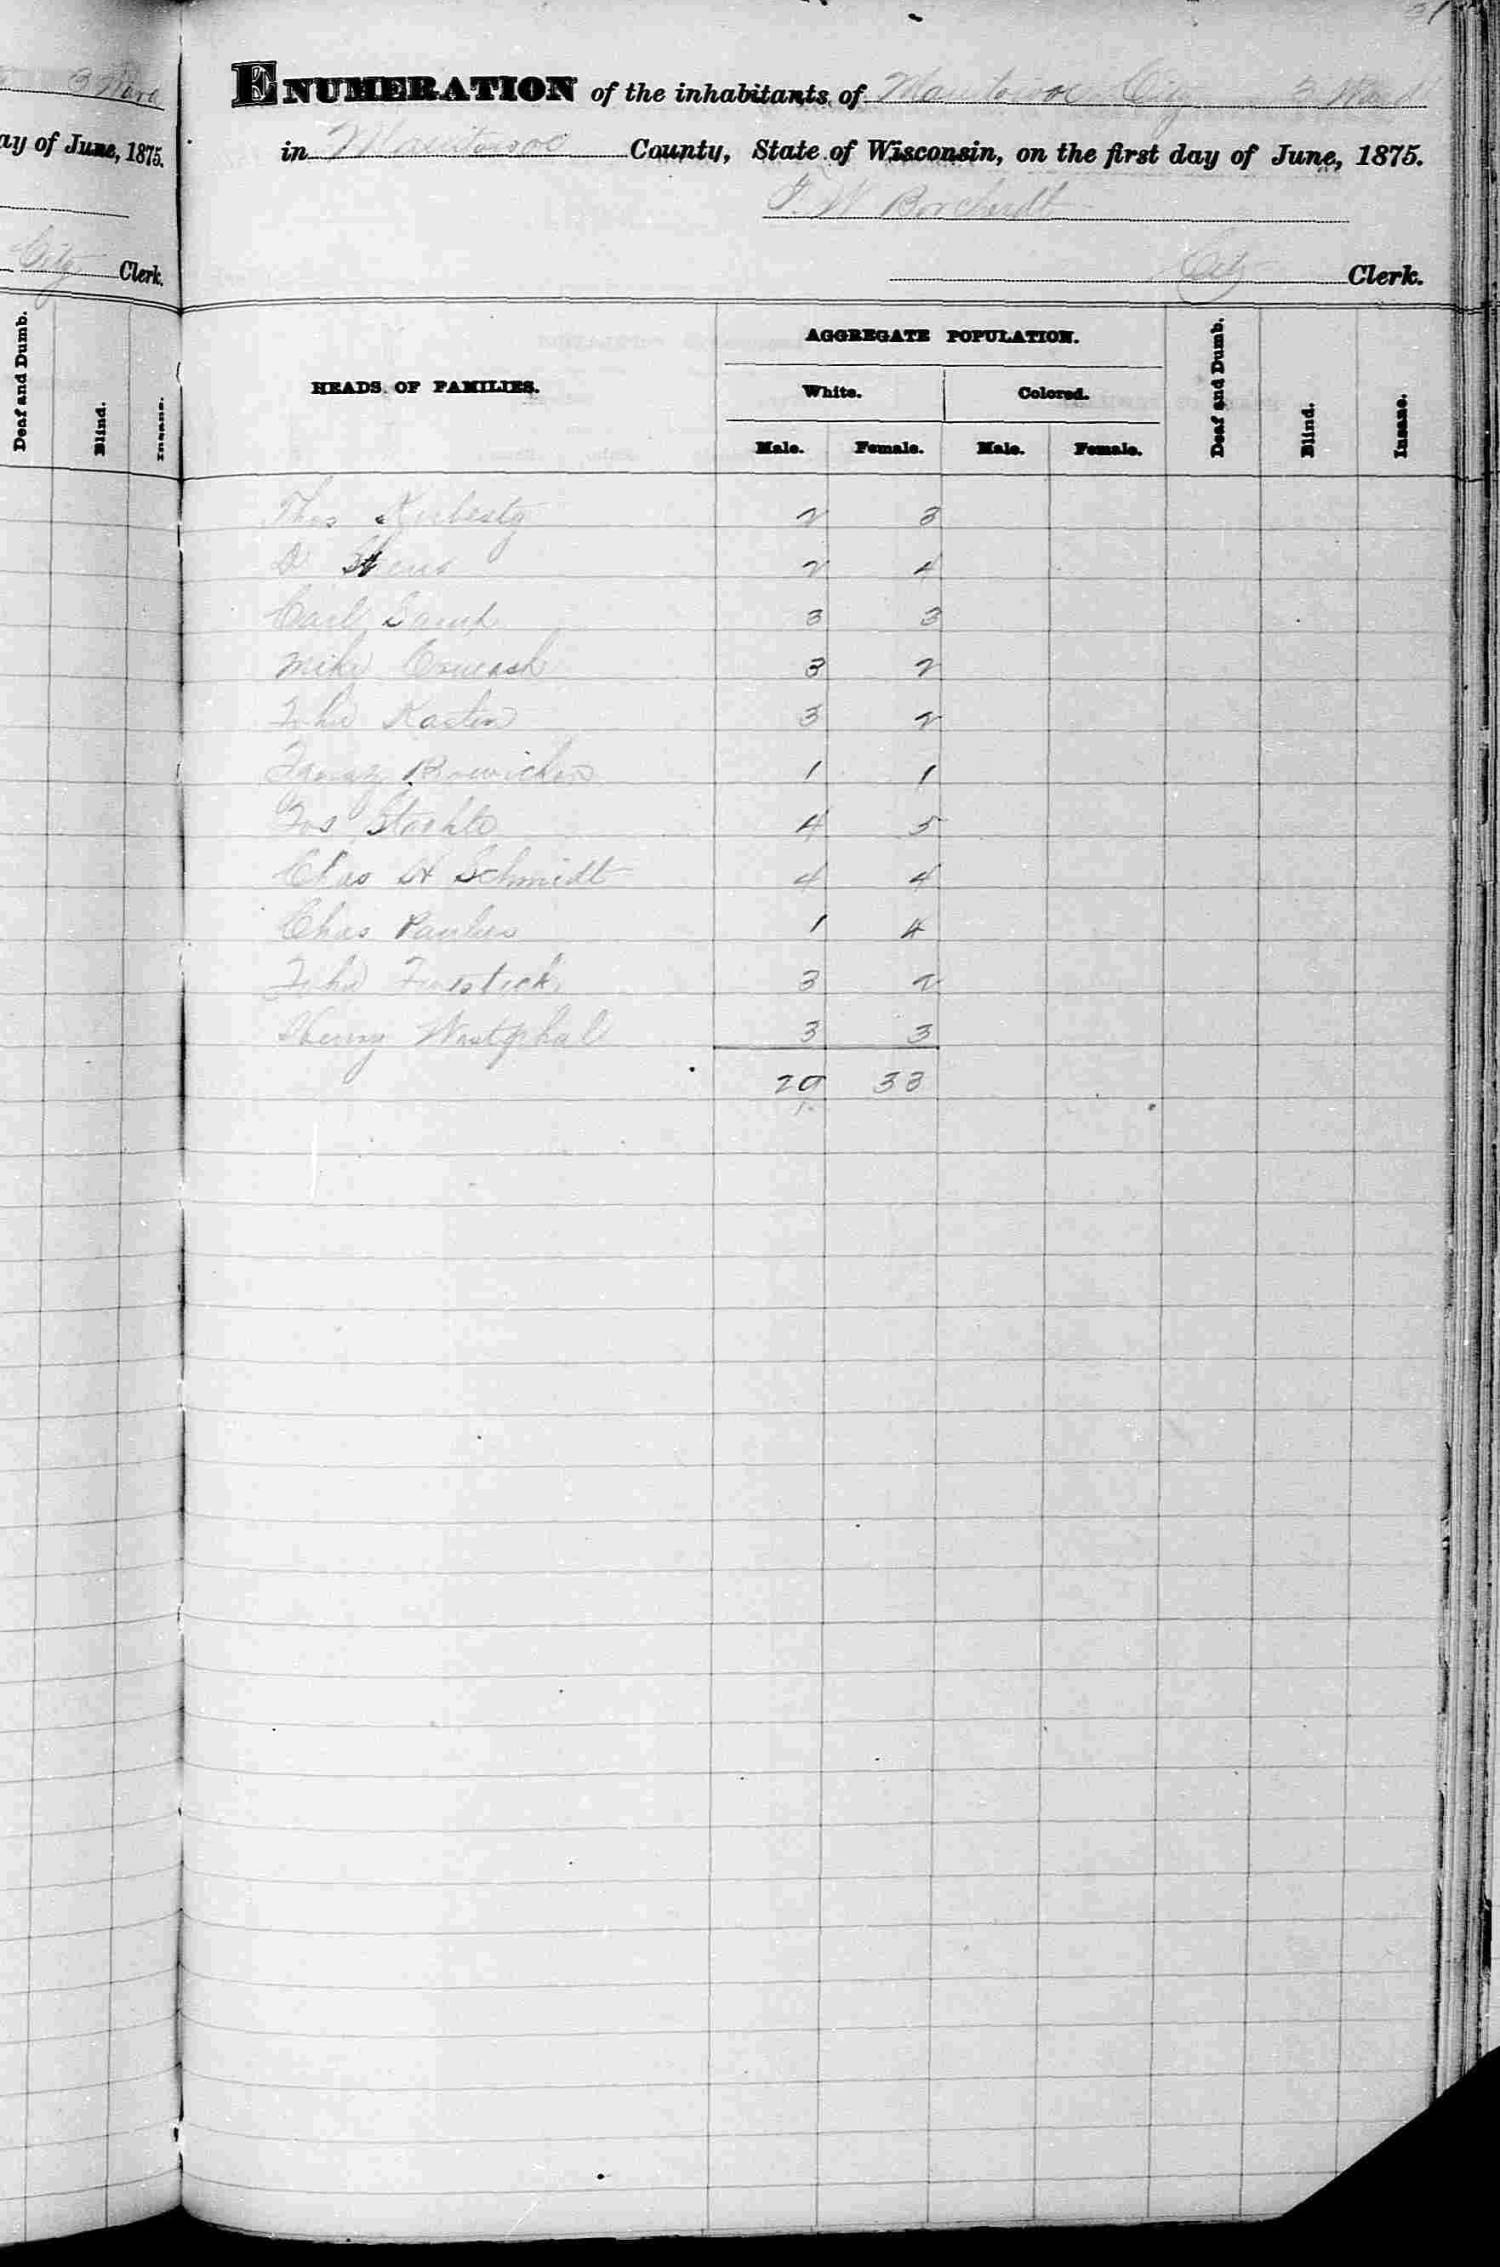 3 Ward
ay of June, 1875.
City Clerk.
Deaf and Dumb. Blind. Insane.
31
ENUMERATION of the inhabitants of Manitowoc City 3 Ward
in Manitowoc County, State of Wisconsin, on the first day of June, 1875.
F. W Borcherdt
City Clerk.
HEADS OF FAMILIES. AGGREGATE POPULATION. Deaf and Dumb. Blind. Insane.
White. Colored.
Male. Female. Male. Female.
Thos 2 3
2 4
Carl 3 3
Mike 3 2
John Kasten 3 2
Ignaz 1 1
Jos Staehle 4 5
Chas H Schmidt 4 4
Chas Paulus 1 4
John 3 2
Henry Westphal 3 3
29 33